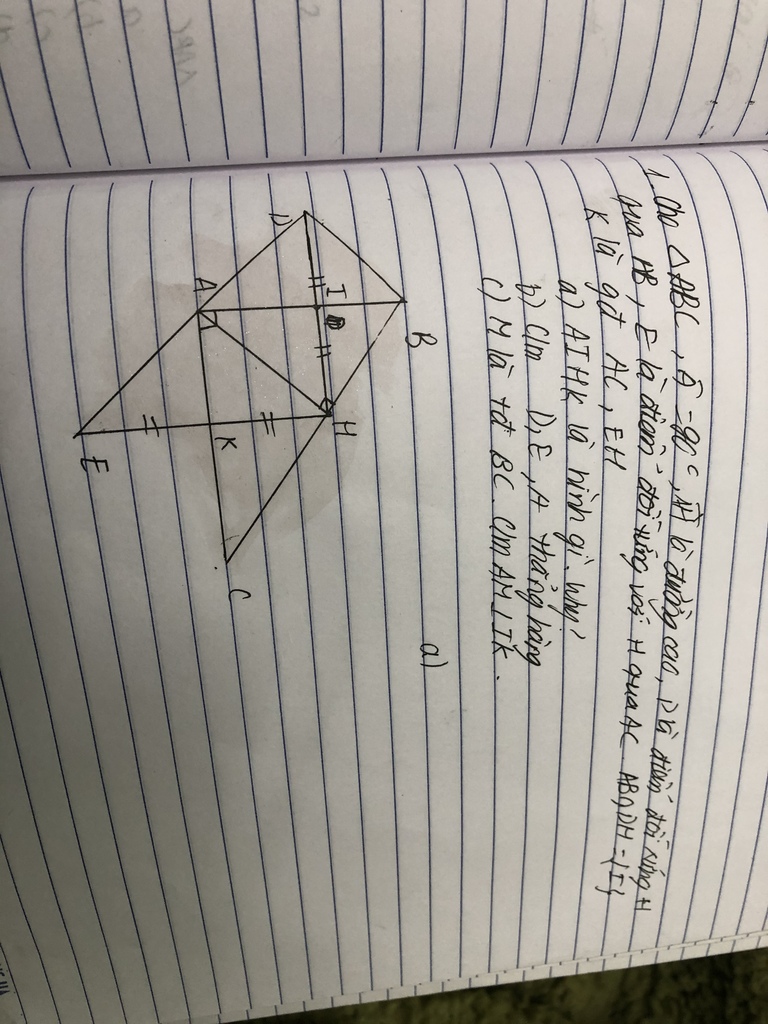 1. Cho △ABC, Â = 90°, AH là đường cao, D là điểm đối xứng H
qua AB, E là điểm đối xứng với H qua AC AB∩DH = {I}
K là gđ AC, EH
a) AIHK là hình gì. Why?
b) C/m D, E, A thẳng hàng
c) M là tđ BC. C/m AM ⊥ IK.
a)
B
D
I
H
A
K
C
E